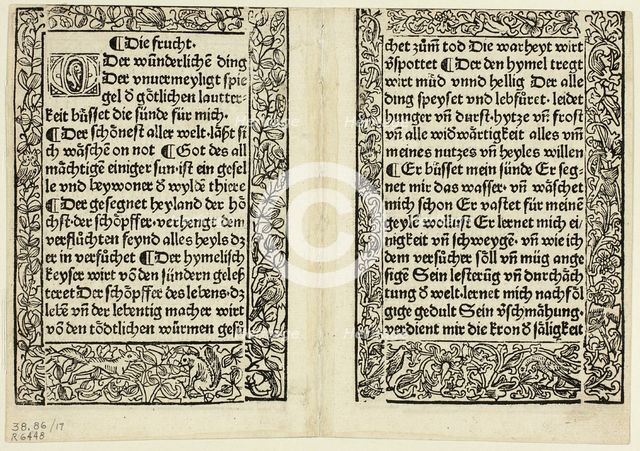 ¶ Die frucht.
O Der wünderlichē ding
Der vnuermeyligt spie
gel đ götlichen lautter-
keit büsset die sünde für mich.
¶ Der schönest aller welt. laßt si
ch wäschē on not ¶ Got des all
mächtigē einiger sun. ist ein gesel
le vnd beywoner đ wyldē thiere
¶ Der gesegnet heyland der hö
chst. der schöpffer. verhengt dem
verflůchten feynd alles heyls dz
er in versůchet ¶ Der hymelisch
keyser wirt vō den sündern geleß
teret Der schöpffer des lebens. dz
lebē vn̄ der lebentig macher wirt
vō den tödtlichen würmen gesů
chet zům̄ tod Die warheyt wirt
v̄spottet ¶ Der den hymel tregt
wirt müd vnnd hellig Der alle
ding speyset vnd lebfüret. leidet
hunger vn̄ durst. hytze vn̄ frost
vn̄ alle widwärtigkeit alles vm̄
meines nutzes vn̄ heyles willen
¶ Er büsset mein sünde Er seg-
net mir das wasser. vn̄ wäschet
mich schon Er vastet für meinē
geyle wollust Er lernet mich ei-
nigkeit vn̄ schweygē. vn̄ wie ich
dem versůcher söll vn̄ müg ange
sigē Sein lesterūg vn̄ durchäch
tung đ welt. lernet mich nachföl
gige gedult Sein v̄schmähung.
verdient mir die kron đ säligkeit
38.86/17
R6448